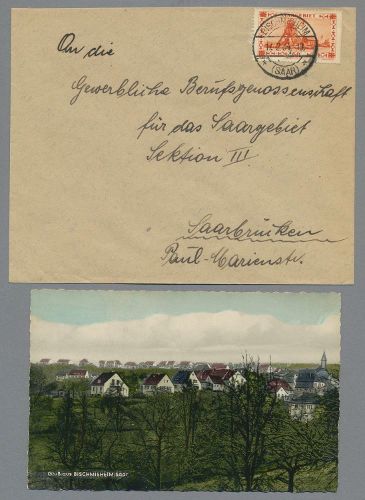 BISCHMISHEIM
(SAAR)
SAARGEBIET
An die
Gewerbliche Berufsgenossenschaft
für das Saargebiet
Sektion III
Saarbrücken
Paul-Marienstr.
Gruß aus BISCHMISHEIM/SAAR